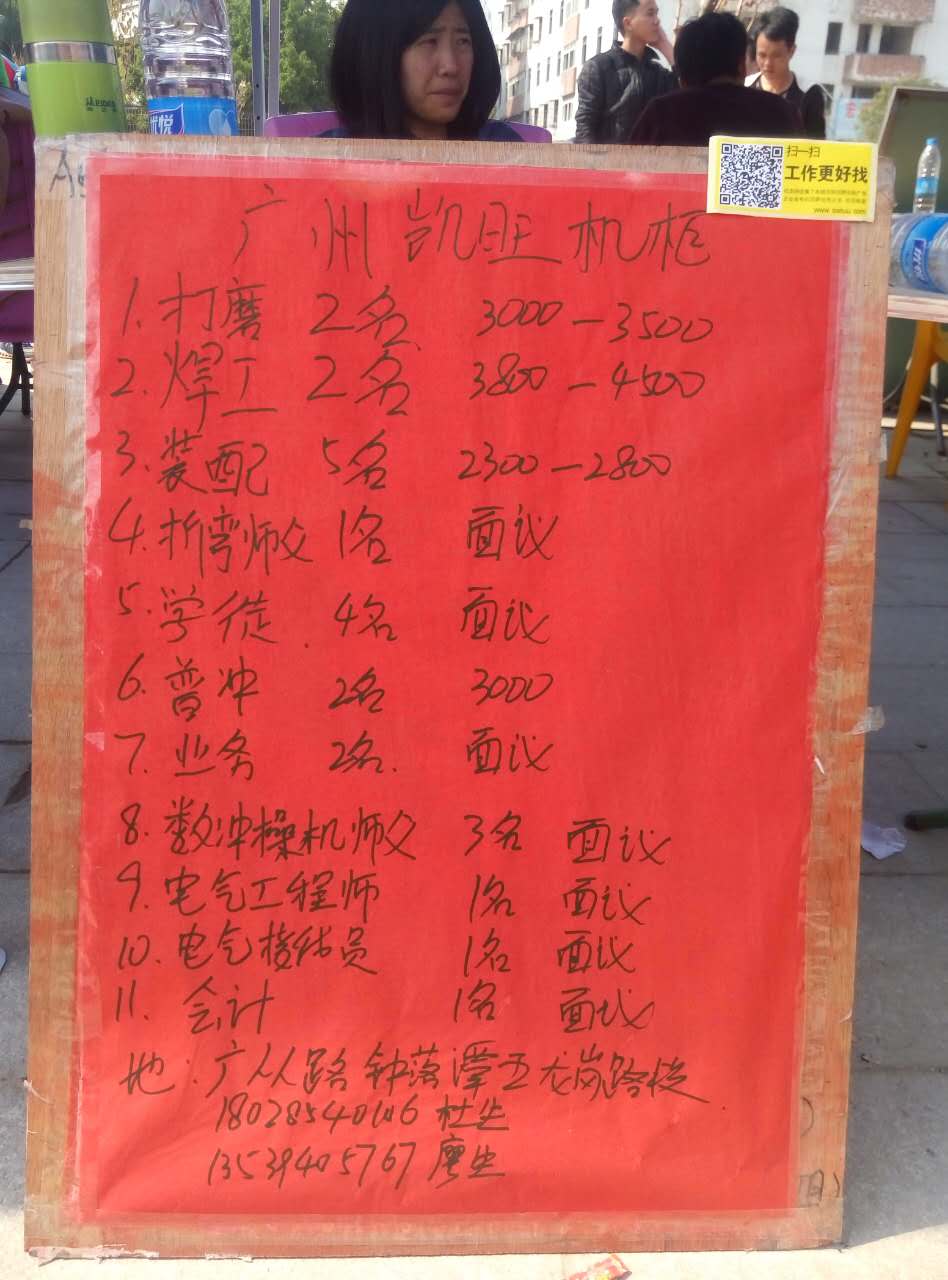 优悦
扫一扫
工作更好找
广州凯旺机柜
1. 打磨 2名 3000—3500
2. 焊工 2名 3800—4500
3. 装配 5名 2300—2800
4. 折弯师父 1名 面议
5. 学徒 4名 面议
6. 普冲 2名 3000
7. 业务 2名. 面议
8. 数冲操机师父 3名 面议
9. 电气工程师 1名 面议
10. 电气接线员 1名 面议
11. 会计 1名 面议
地:广从路钟落潭五龙岗路段
杜生
13539405767